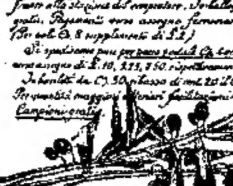 franco alla stazione del compratore. Imballaggio
gratis. Pagamenti verso assegno ferroviario
(Per sole Cg. 8 supplemento di £ 2)
Si spediscono pure per pacco postale Cg.
verso assegno di £. 10, 9.25, 7.50. rispettivamente
In bariletti da Cg. 50 ribasso di cent. 20 il
Per quantità maggiori ulteriori facilitazioni
Campioni gratis